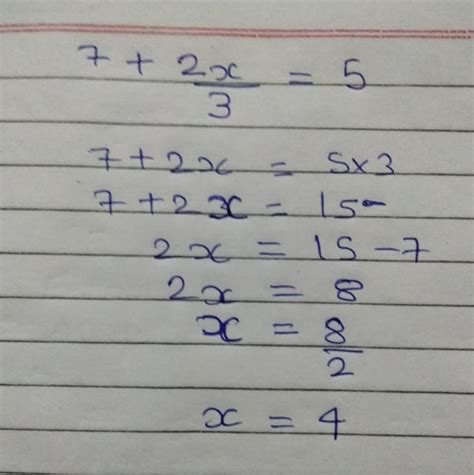 7 + 2x/3 = 5
7 + 2x = 5×3
7 + 2x = 15
2x = 15 - 7
2x = 8
x = 8/2
x = 4